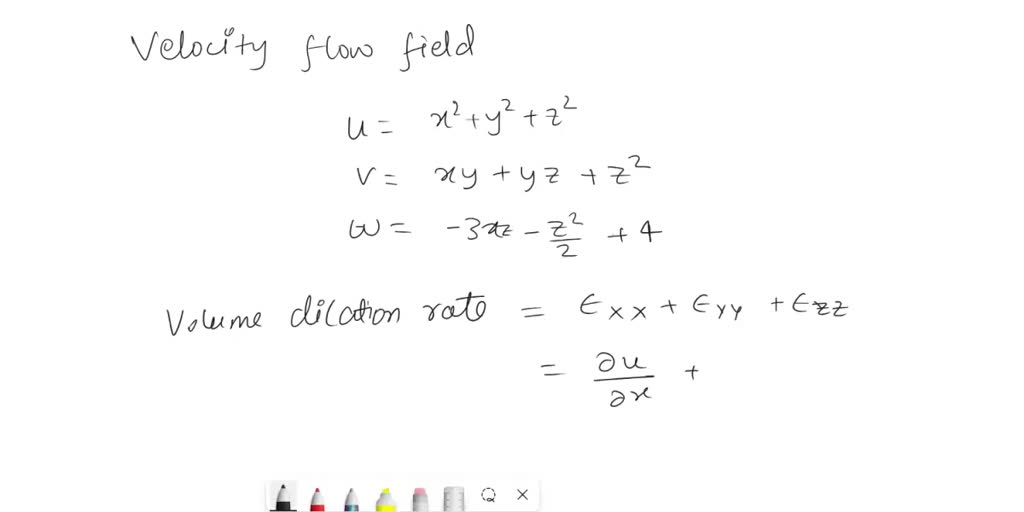 Velocity flow field
u = x²+y²+z²
v = xy + yz + z²
ω = -3xz - z²/2 + 4
Volume dilation rate = ϵxx + ϵyy + ϵzz
= ∂u/∂x +